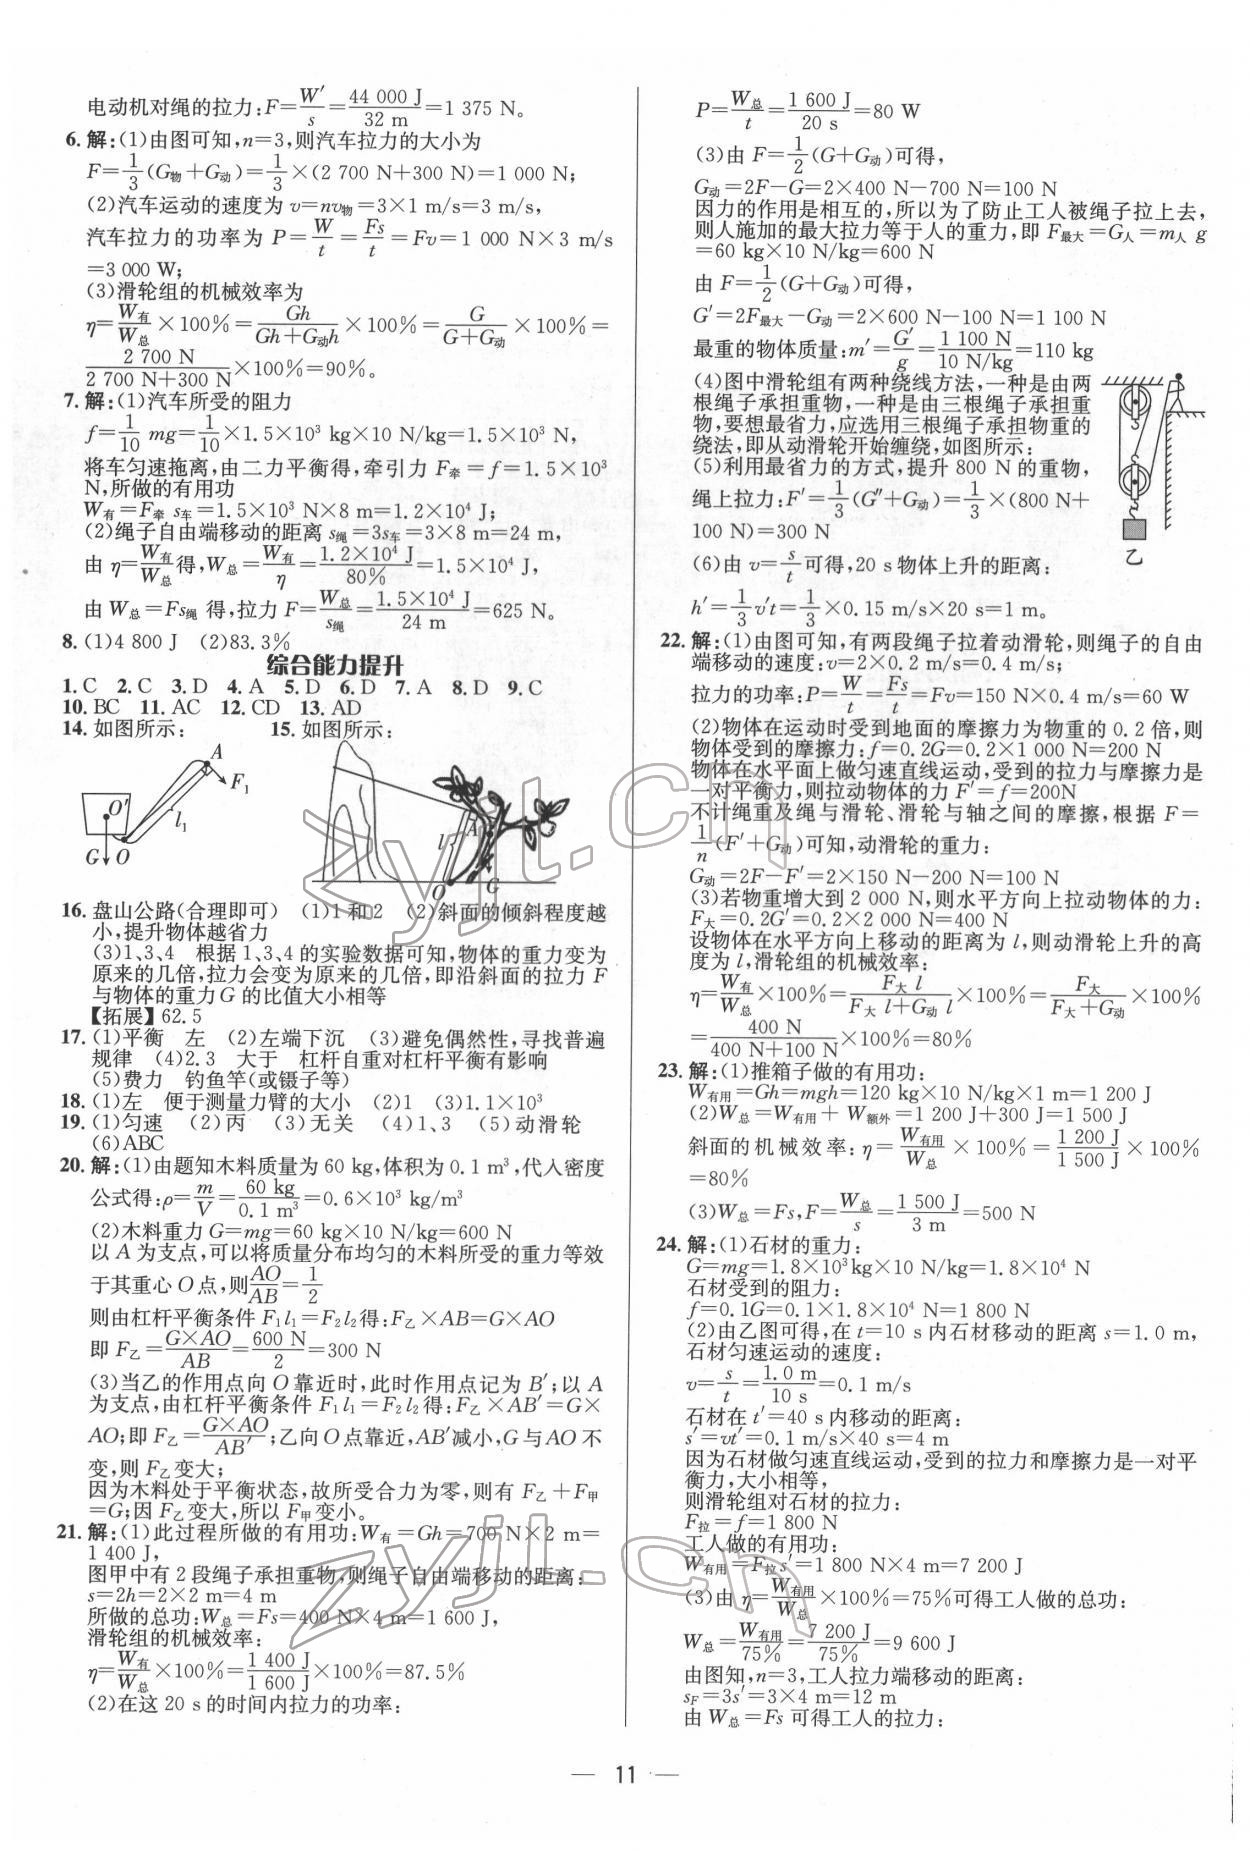 电动机对绳的拉力:F=W′/s=44 000 J/32 m=1 375 N。
6. 解:(1)由图可知,n=3,则汽车拉力的大小为
F=1/3(G物+G动)=1/3×(2 700 N+300 N)=1 000 N;
(2)汽车运动的速度为 v=nv物=3×1 m/s=3 m/s,
汽车拉力的功率为 P=W/t=Fs/t=Fv=1 000 N×3 m/s
=3 000 W;
(3)滑轮组的机械效率为
η=W有/W总×100%=Gh/(Gh+G动h)×100%=G/(G+G动)×100%=
2 700 N/(2 700 N+300 N)×100%=90%。
7. 解:(1)汽车所受的阻力
f=1/10 mg=1/10×1.5×10³ kg×10 N/kg=1.5×10³ N,
将车匀速拖离,由二力平衡得,牵引力 F牵=f=1.5×10³
N,所做的有用功
W有=F牵 s车=1.5×10³ N×8 m=1.2×10⁴ J;
(2)绳子自由端移动的距离 s绳=3s车=3×8 m=24 m,
由 η=W有/W总得,W总=W有/η=1.2×10⁴ J/80%=1.5×10⁴ J,
由 W总=Fs绳 得,拉力 F=W总/s绳=1.5×10⁴ J/24 m=625 N。
8. (1)4 800 J (2)83.3%
综合能力提升
1. C 2. C 3. D 4. A 5. D 6. D 7. A 8. D 9. C
10. BC 11. AC 12. CD 13. AD
14. 如图所示: 15. 如图所示:
A F₁ O′ l₁ G O
A l O G
16. 盘山公路(合理即可) (1)1 和 2 (2)斜面的倾斜程度越
小,提升物体越省力
(3)1、3、4 根据 1、3、4 的实验数据可知,物体的重力变为
原来的几倍,拉力会变为原来的几倍,即沿斜面的拉力 F
与物体的重力 G 的比值大小相等
【拓展】62.5
17. (1)平衡 左 (2)左端下沉 (3)避免偶然性,寻找普遍
规律 (4)2.3 大于 杠杆自重对杠杆平衡有影响
(5)费力 钓鱼竿(或镊子等)
18. (1)左 便于测量力臂的大小 (2)1 (3)1.1×10³
19. (1)匀速 (2)丙 (3)无关 (4)1、3 (5)动滑轮
(6)ABC
20. 解:(1)由题知木料质量为 60 kg,体积为 0.1 m³,代入密度
公式得:ρ=m/V=60 kg/0.1 m³=0.6×10³ kg/m³
(2)木料重力 G=mg=60 kg×10 N/kg=600 N
以 A 为支点,可以将质量分布均匀的木料所受的重力等效
于其重心 O 点,则AO/AB=1/2
则由杠杆平衡条件 F₁l₁=F₂l₂得:F乙×AB=G×AO
即 F乙=G×AO/AB=600 N/2=300 N
(3)当乙的作用点向 O 靠近时,此时作用点记为 B′;以 A
为支点,由杠杆平衡条件 F₁l₁=F₂l₂得:F乙×AB′=G×
AO;即 F乙=G×AO/AB′;乙向 O 点靠近,AB′减小,G 与 AO 不
变,则 F乙变大;
因为木料处于平衡状态,故所受合力为零,则有 F乙+F甲
=G;因 F乙变大,所以 F甲变小。
21. 解:(1)此过程所做的有用功:W有=Gh=700 N×2 m=
1 400 J,
图甲中有 2 段绳子承担重物,则绳子自由端移动的距离:
s=2h=2×2 m=4 m
所做的总功:W总=Fs=400 N×4 m=1 600 J,
滑轮组的机械效率:
η=W有/W总×100%=1 400 J/1 600 J×100%=87.5%
(2)在这 20 s 的时间内拉力的功率:
P=W总/t=1 600 J/20 s=80 W
(3)由 F=1/2(G+G动)可得,
G动=2F-G=2×400 N-700 N=100 N
因力的作用是相互的,所以为了防止工人被绳子拉上去,
则人施加的最大拉力等于人的重力,即 F最大=G人=m人 g
=60 kg×10 N/kg=600 N
由 F=1/2(G+G动)可得,
G′=2F最大-G动=2×600 N-100 N=1 100 N
最重的物体质量:m′=G′/g=1 100 N/10 N/kg=110 kg
(4)图中滑轮组有两种绕线方法,一种是由两
根绳子承担重物,一种是由三根绳子承担重
物,要想最省力,应选用三根绳子承担物重的
绕法,即从动滑轮开始缠绕,如图所示:
(5)利用最省力的方式,提升 800 N 的重物,
绳上拉力:F′=1/3(G″+G动)=1/3×(800 N+
100 N)=300 N
乙
(6)由 v=s/t可得,20 s物体上升的距离:
h′=1/3v′t=1/3×0.15 m/s×20 s=1 m。
22. 解:(1)由图可知,有两段绳子拉着动滑轮,则绳子的自由
端移动的速度:v=2×0.2 m/s=0.4 m/s,
拉力的功率:P=W/t=Fs/t=Fv=150 N×0.4 m/s=60 W
(2)物体在运动时受到地面的摩擦力为物重的 0.2 倍,则
物体受到的摩擦力:f=0.2G=0.2×1 000 N=200 N
物体在水平面上做匀速直线运动,受到的拉力与摩擦力是
一对平衡力,则拉动物体的力 F′=f=200N
不计绳重及绳与滑轮、滑轮与轴之间的摩擦,根据 F=
1/n(F′+G动)可知,动滑轮的重力:
G动=2F-F′=2×150 N-200 N=100 N
(3)若物重增大到 2 000 N,则水平方向上拉动物体的力:
F大=0.2G′=0.2×2 000 N=400 N
设物体在水平方向上移动的距离为 l,则动滑轮上升的高
度为 l,滑轮组的机械效率:
η=W有/W总×100%=F大 l/(F大 l+G动 l)×100%=F大/(F大+G动)×100%
=400 N/(400 N+100 N)×100%=80%
23. 解:(1)推箱子做的有用功:
W有用=Gh=mgh=120 kg×10 N/kg×1 m=1 200 J
(2)W总=W有用+W额外=1 200 J+300 J=1 500 J
斜面的机械效率:η=W有用/W总×100%=1 200 J/1 500 J×100%
=80%
(3)W总=Fs,F=W总/s=1 500 J/3 m=500 N
24. 解:(1)石材的重力:
G=mg=1.8×10³kg×10 N/kg=1.8×10⁴ N
石材受到的阻力:
f=0.1G=0.1×1.8×10⁴ N=1 800 N
(2)由乙图可得,在 t=10 s 内石材移动的距离 s=1.0 m,
石材匀速运动的速度:
v=s/t=1.0 m/10 s=0.1 m/s
石材在 t′=40 s内移动的距离:
s′=vt′=0.1 m/s×40 s=4 m
因为石材做匀速直线运动,受到的拉力和摩擦力是一对平
衡力,大小相等,
则滑轮组对石材的拉力:
F拉=f=1 800 N
工人做的有用功:
W有用=F拉s′=1 800 N×4 m=7 200 J
(3)由 η=W有用/W总×100%=75%可得工人做的总功:
W总=W有用/75%=7 200 J/75%=9 600 J
由图知,n=3,工人拉力端移动的距离:
sF=3s′=3×4 m=12 m
由 W总=Fs 可得工人的拉力:
— 11 —
zyjl.cn
zyjl.cn